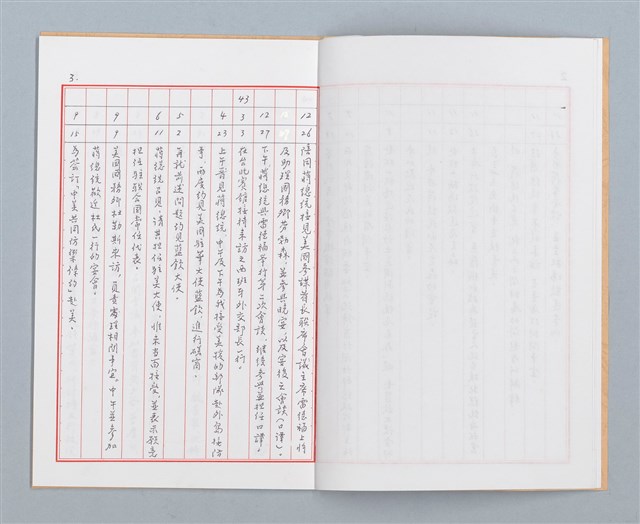 3.
12 26 陪同蔣總統接見美國參謀首長聯席會議主席雷德福上將
及助理國務卿勞勃森，並參與晚宴，以及宴後之會談(口譯)。
12 27 下午蔣總統與雷德福舉行第二次會談，繼續參與並担任口譯。
43 3 3 在台北賓館接待來訪之西班牙外交部長一行。
4 23 上午晉見蔣總統，中午及下午為我接受美援的部隊赴外島接防
事，兩度約見美國駐華大使藍欽，進行磋商。
5 2 再就前述問題約見藍欽大使。
6 11 蔣總統召見，請其担任駐美大使，惟未當面接受，並表示願意
担任駐聯合國常任代表。
9 9 美國國務卿杜勒斯來訪，負責安排相關事宜，中午並參加
蔣總統歡迎杜氏一行的宴會。
9 15 為簽訂「中美共同防禦條約」赴美。